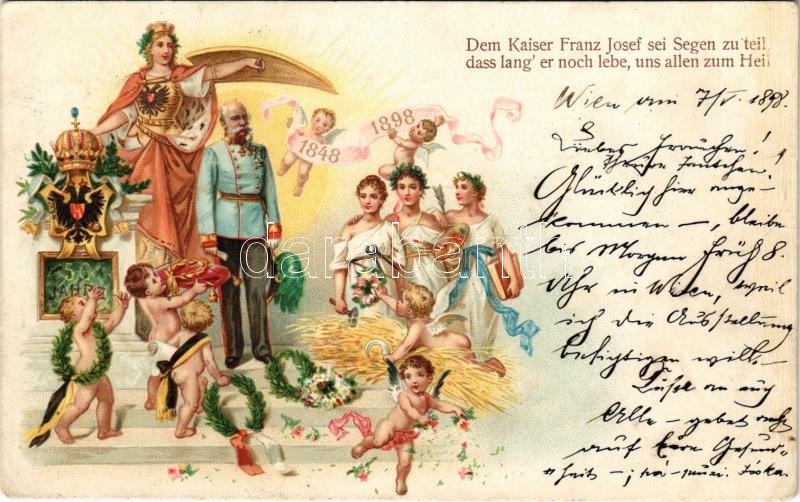 Dem Kaiser Franz Josef sei Segen zu teil,
dass lang' er noch lebe, uns allen zum Heil
1848 1898
50
JAHRE
Wien am 7/V. 1898.
Liebes Frauchen!
Glücklich hier ange-
kommen –, bleibe
bis Morgen früh 8.
Uhr in Wien, weil
ich die Ausstellung
besichtigen will.
Küsse an euch
Alle – gebet acht
auf Eure Gesund-
heit –
darabanth